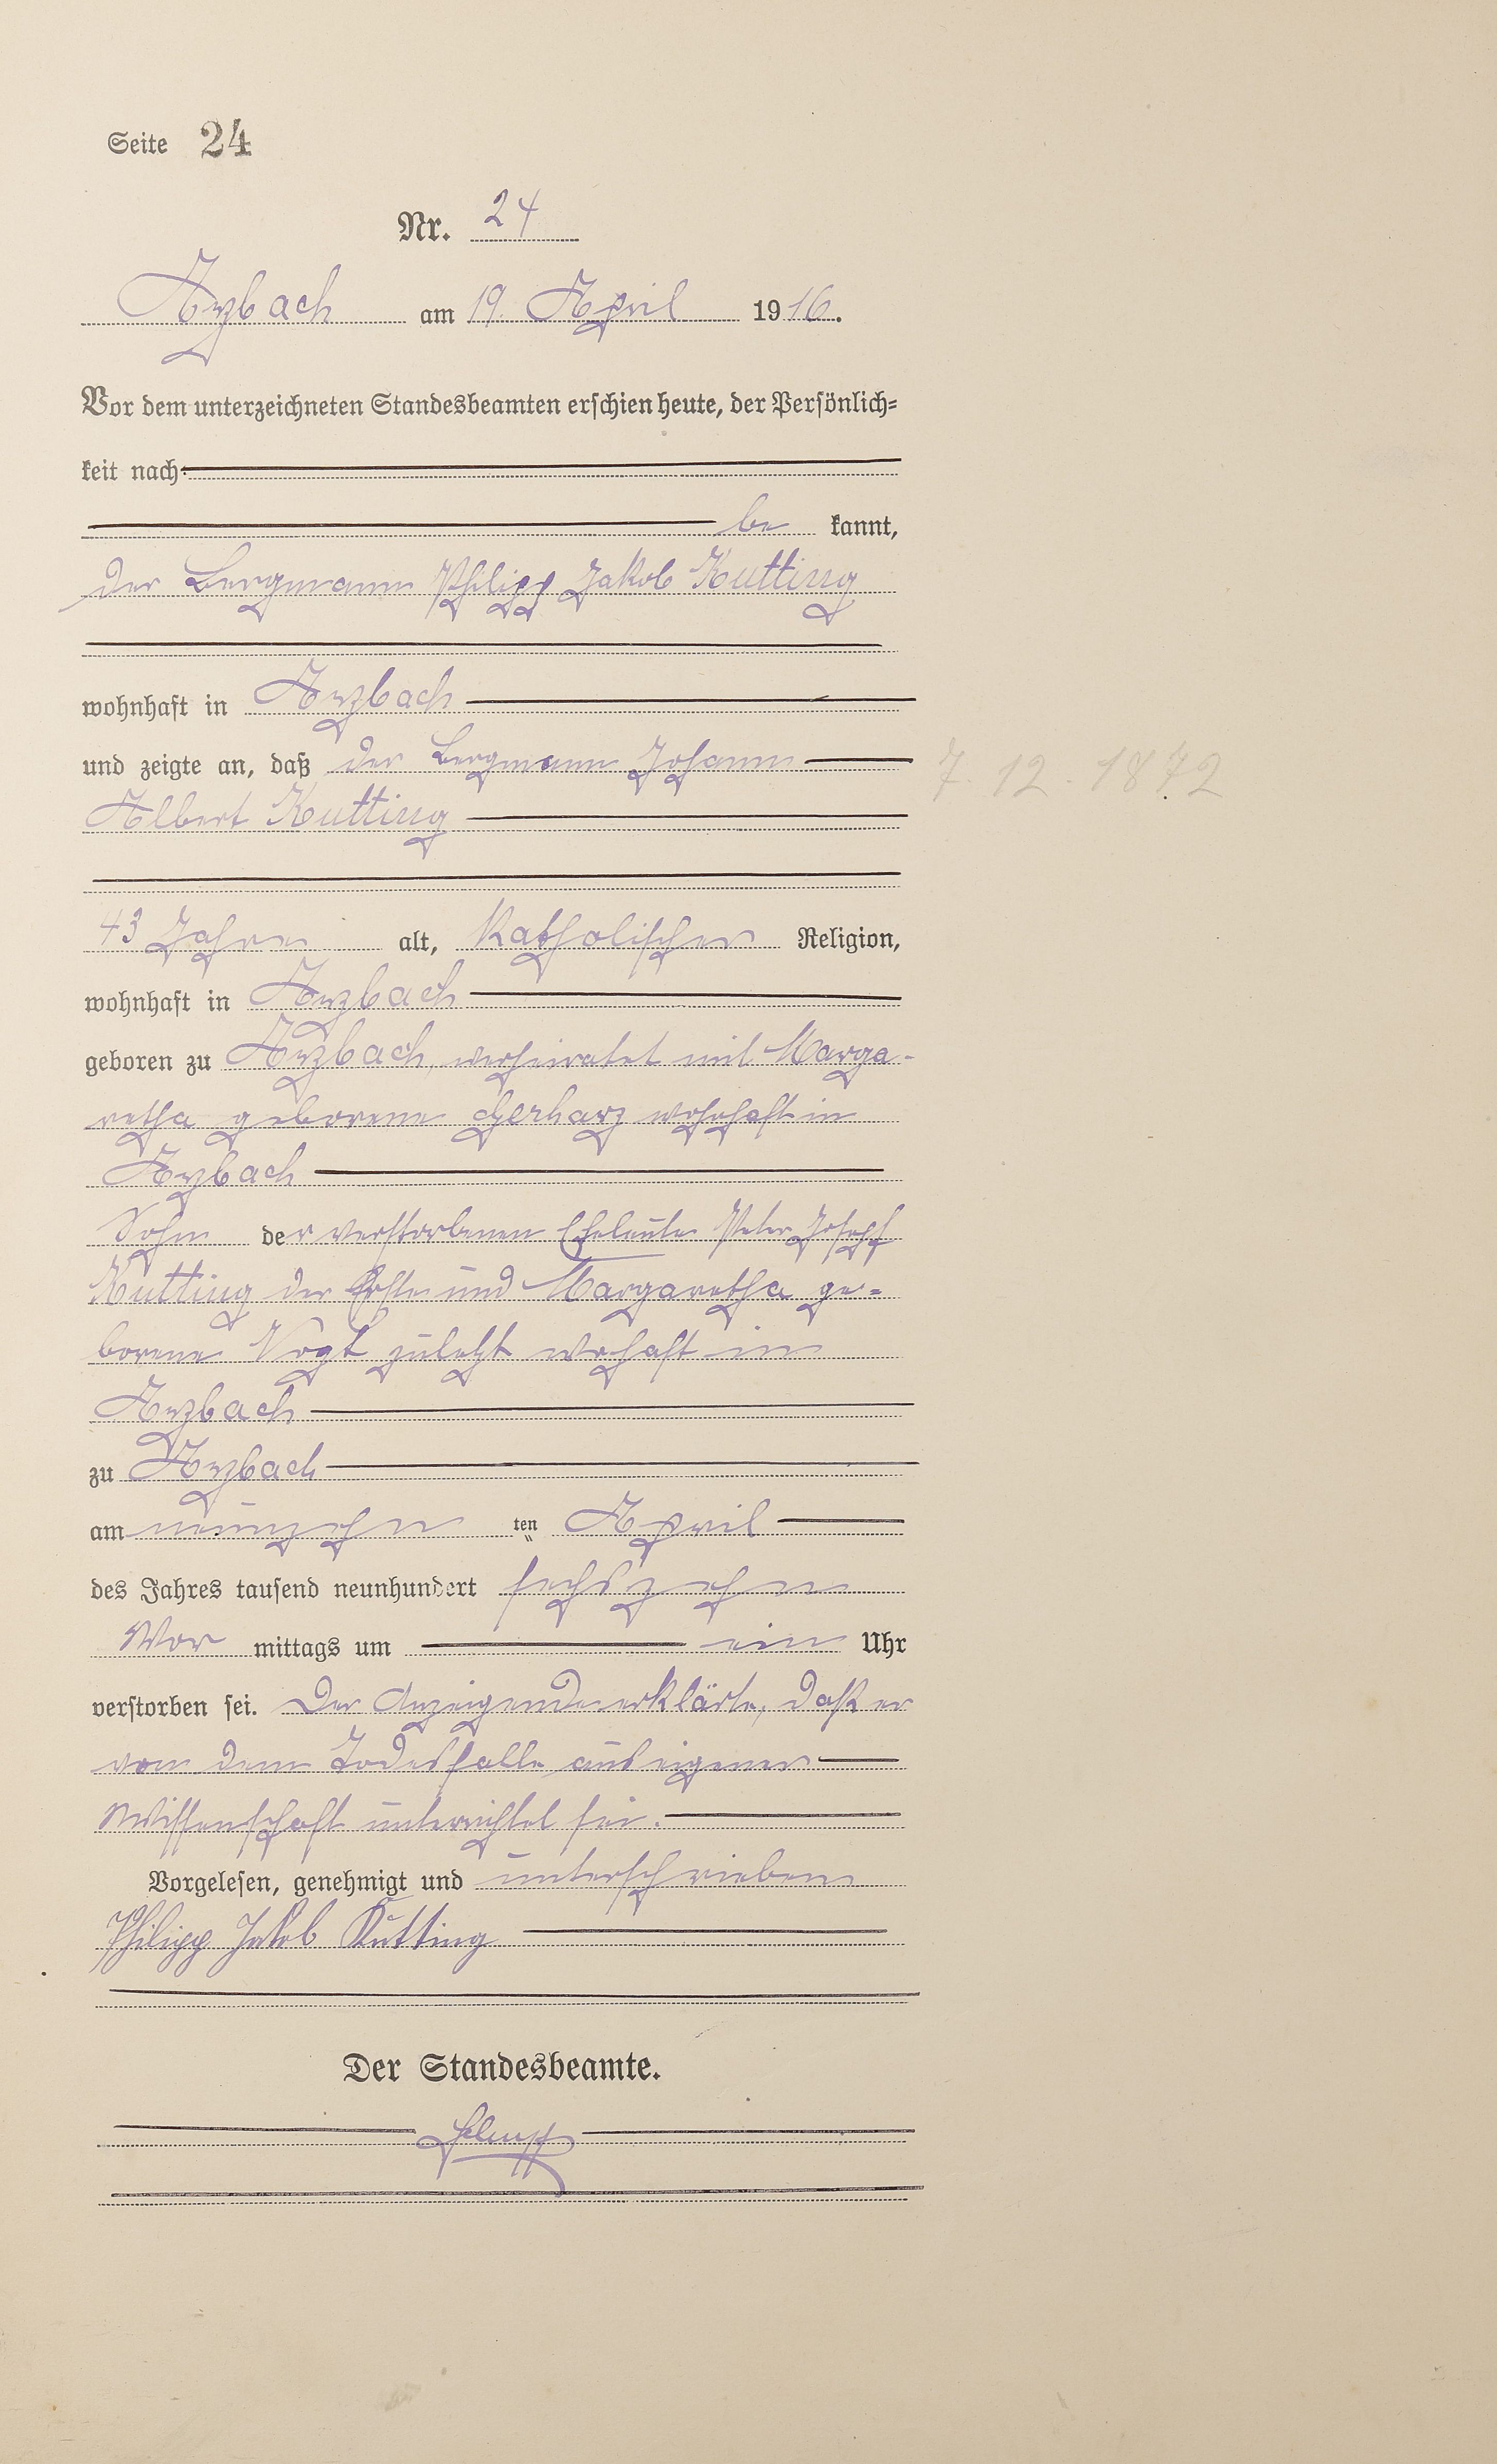 Seite 24
Nr. 24
Arzbach am 19. April 1916.
Vor dem unterzeichneten Standesbeamten erschien heute, der Persönlich=
keit nach
be kannt,
der Bergmann Philipp Jakob Kutting
wohnhaft in Arzbach
und zeigte an, daß der Bergmann Johann
7. 12. 1872
Albert Kutting
43 Jahre alt, katholischer Religion,
wohnhaft in Arzbach
geboren zu Arzbach, verheiratet mit Marga-
retha geborene Gerharz wohnhaft in
Arzbach
Sohn der verstorbenen Eheleute Peter Joseph
Kutting der Erste und Margaretha ge=
borene Vogt zuletzt wohaft in
Arzbach
zu Arzbach
am neunzehn ten April
des Jahres tausend neunhundert sechszehn
Vor mittags um ein Uhr
verstorben sei. Der Anzeigende erklärte, daß er
von dem Todesfalle aus eigener
Wissenschaft unterrichtet sei.
Vorgelesen, genehmigt und unterschrieben
Philipp Jakob Kutting
Der Standesbeamte.